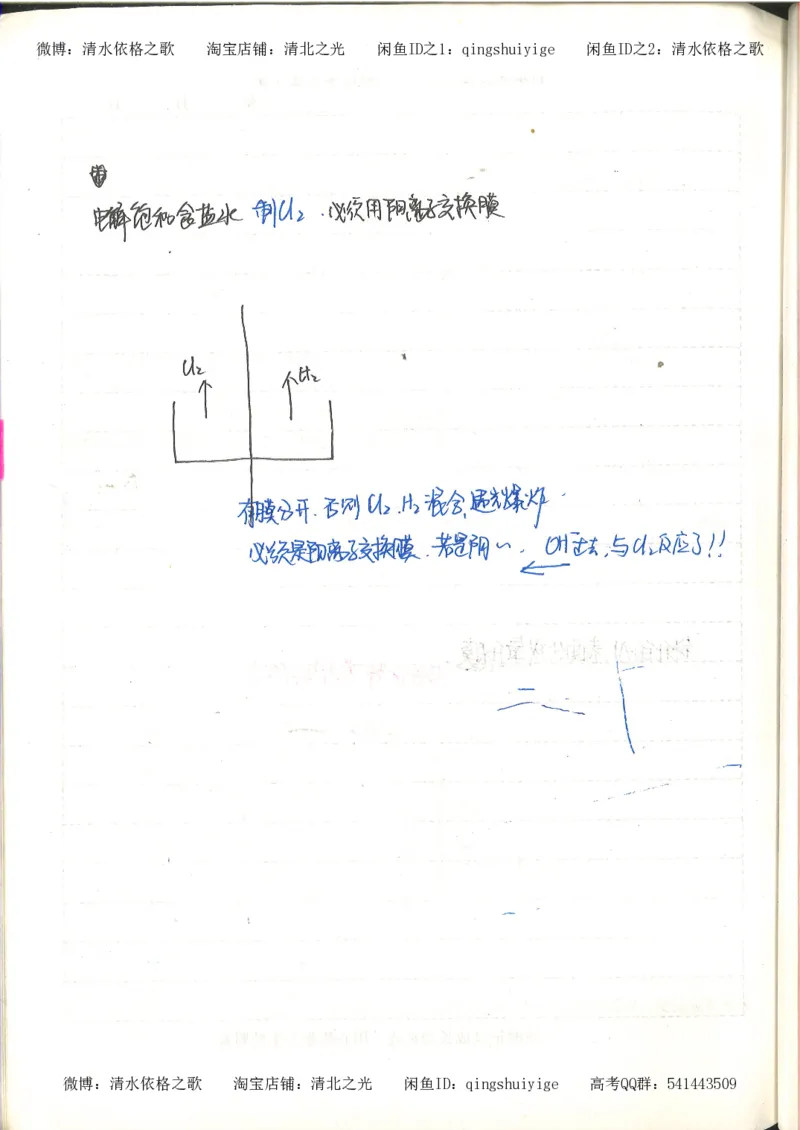 微博：清水依格之歌 淘宝店铺：清北之光 闲鱼ID之1：qingshuiyige 闲鱼ID之2：清水依格之歌
电解饱和食盐水 制Cl₂．必须用阳离子交换膜
Cl₂ H₂
有膜分开．否则Cl₂、H₂混合，遇光爆炸．
必须是阳离子交换膜．若是阴〃．OH⁻过去，与Cl₂反应了!!
微博：清水依格之歌 淘宝店铺：清北之光 闲鱼ID：qingshuiyige 高考QQ群：541443509